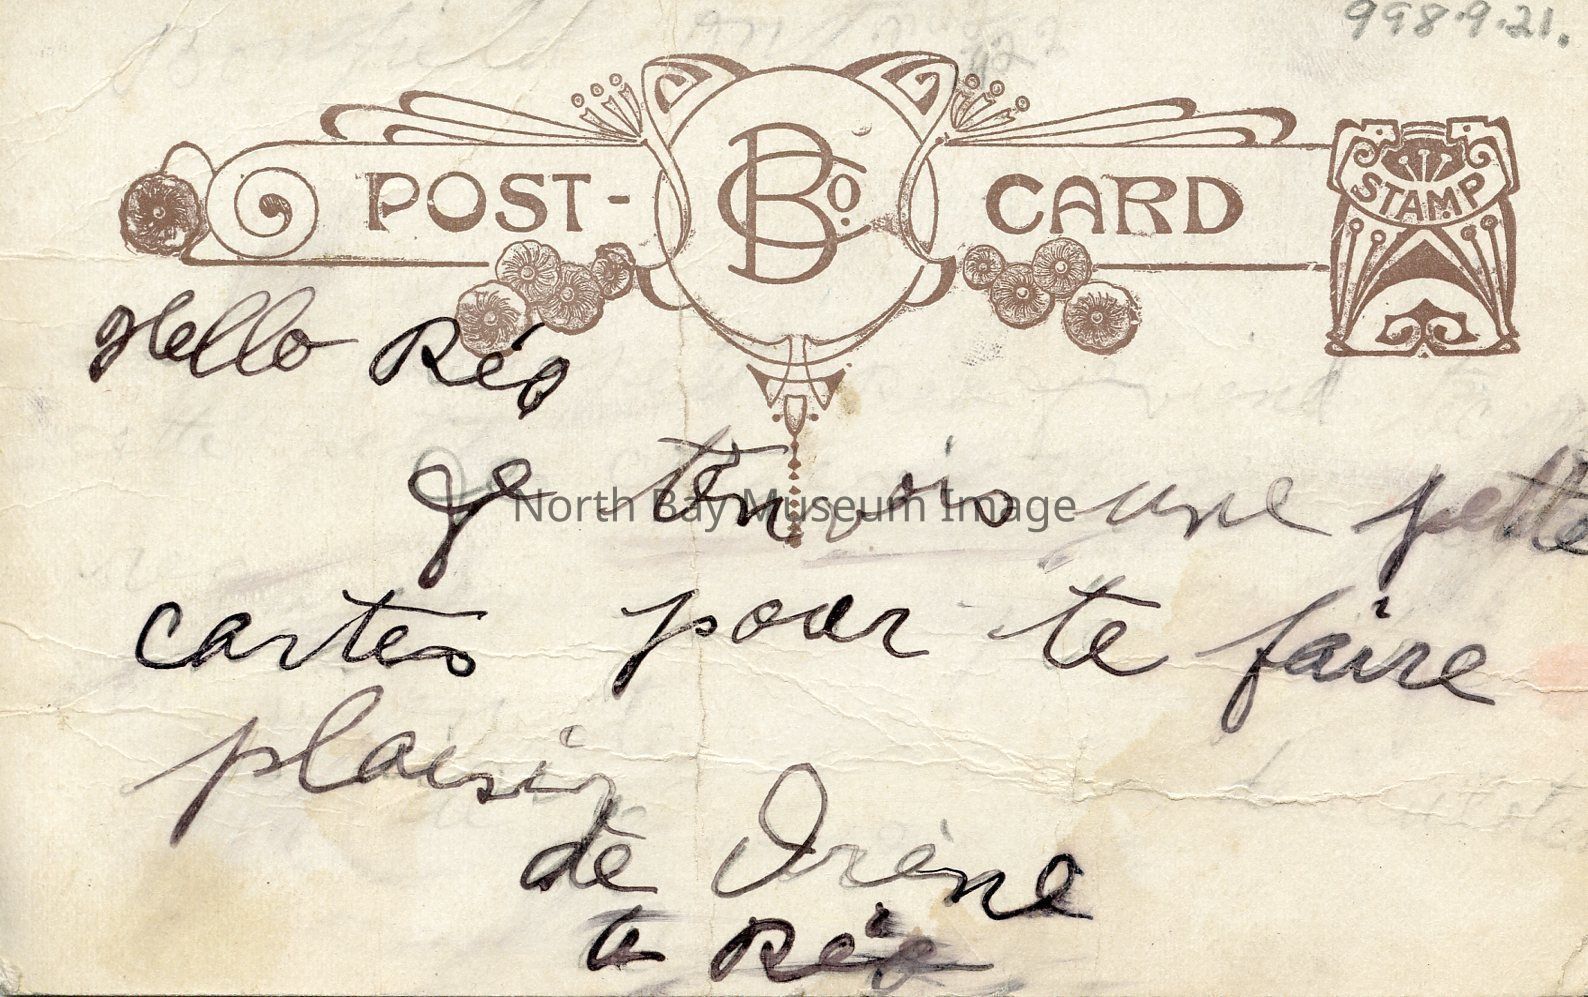 998.9.21.
POST- BCo. CARD
STAMP
Hello Rép
Je t'envois une petite
cartes pour te faire
plaisir
de Irène
to Rép
North Bay Museum Image